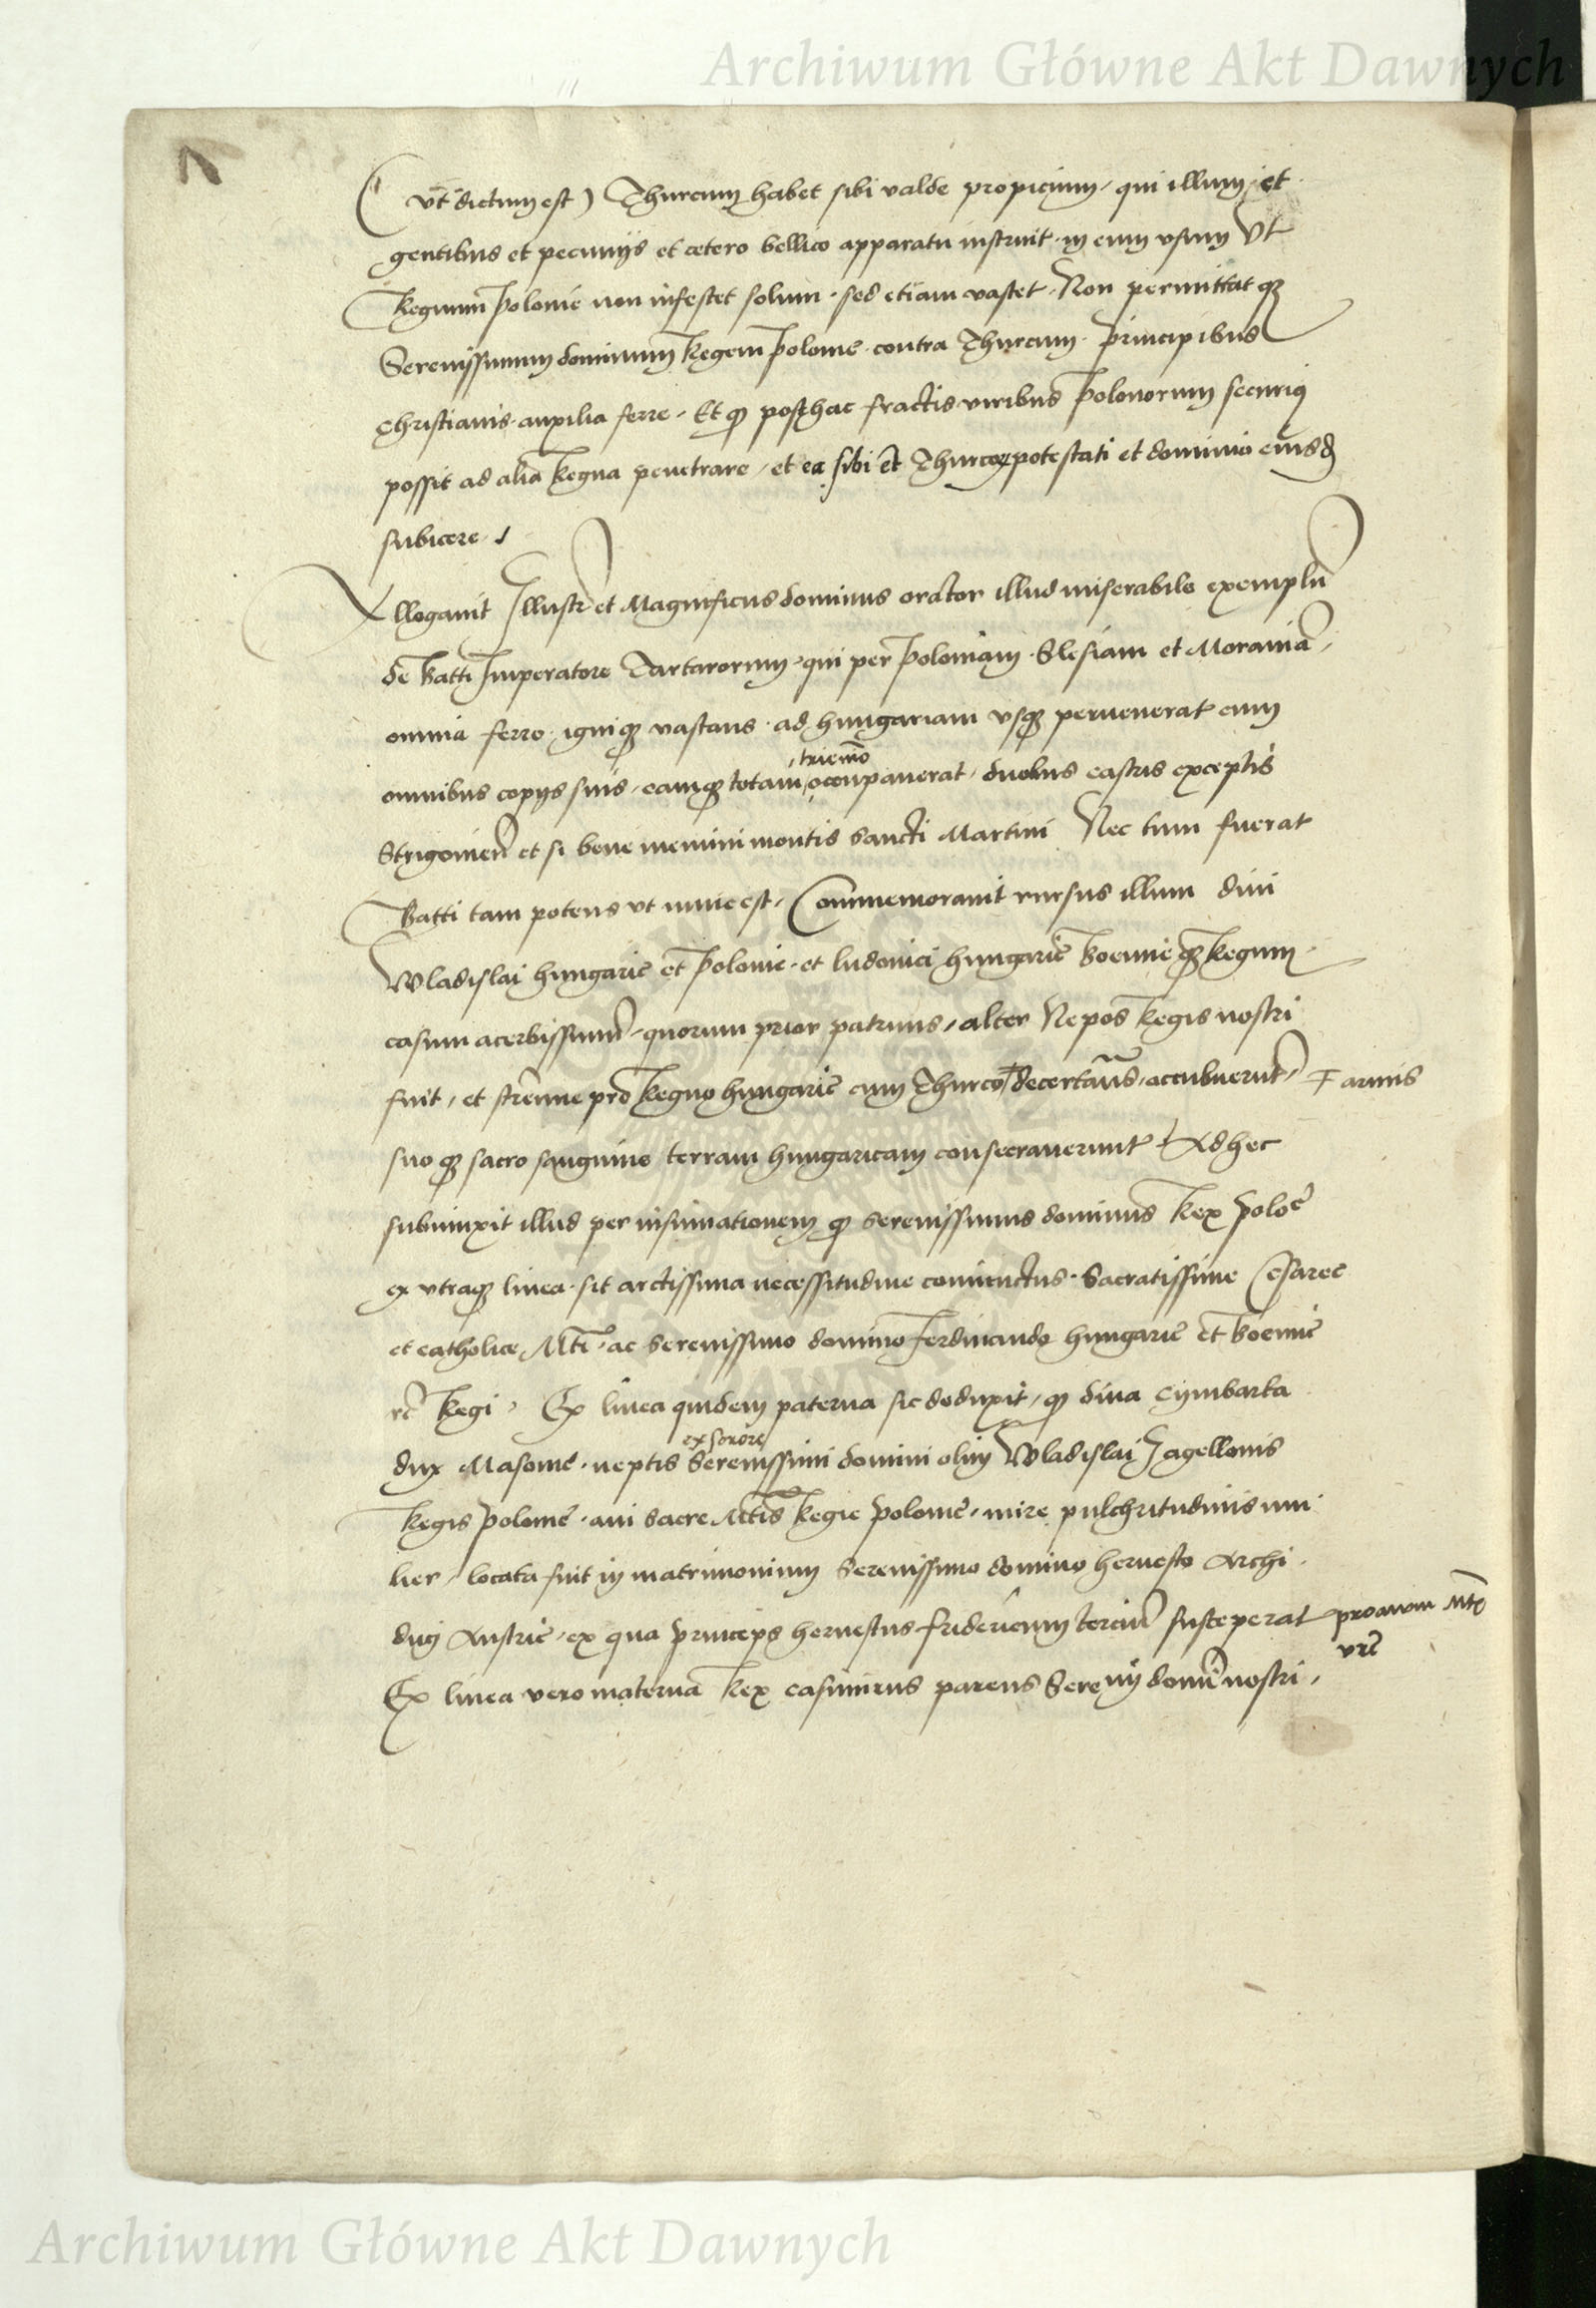 Archiwum Główne Akt Dawnych
( vt dictum est ) Thurcum habet sibi valde propicium, qui illum et
gentibus et pecunijs et cetero bellico apparatu instruit in eum vsum Vt
Regnum Polonie non infestet solum, sed etiam vastet, Non permittat q3
Serenissimum dominum Regem Polonie contra Thurcum principibus
Christianis auxilia ferre, Et q posthac fractis viribus Polonorum securius
possit ad alia Regna penetrare, et ea sibi et Thurcor potestati et dominio eiusd
subicere
Allegauit Illustr et Magnificus dominus orator illud miserabile exemplu
de Batti Imperatore Tartarorum, qui per Poloniam Slesiam et Morauia,
omnia ferro igniq3 vastans ad hungariam vsq3 peruenerat cum
triennio
omnibus copijs suis, eamq3 totam occupauerat, duobus castris exceptis
Strigonien et si bene memini montis Sancti Martini Nec tum fuerat
Batti tam potens vt nunc est, Commemorauit rursus illum diui
Wladislai hungarie et Polonie et ludouici hungarie Boemie q3 Regum
casum acerbissimu, quorum prior patruus, alter Nepos Regis nostri
fuit, et strenue pro Regno hungarie cum Thurco decertans, accubuerut, armis
suo q3 sacro sanguine terram hungaricam consecrauerunt Adhec
subiunxit illud per insinuationem q Serenissimus dominus Rex Poloe
ex vtraq3 linea sit arctissima necessitudine coniunctus Sacratissime Cesaree
et catholice Mti ac Serenissimo domino Ferdinando hungarie et Boemie
rc Regi, Ex linea quidem paterna sic deduxit, q diua Cymbarka
ex sorore
dux Masouie, neptis Serenissimi domini olim Wladislai Jagellonis
Regis Polonie, aui Sacre Mtis Regie Polonie, mire pulchritudinis mu
lier, locata fuit in matrimonium Serenissimo domino hernesto Archi
duci Austrie, ex qua princeps hernestus fridericum terciu susceperat proauum Mtis
vre
Ex linea vero materna Rex casimirus parens Serenij domi nostri,
Archiwum Główne Akt Dawnych